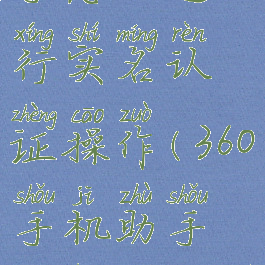 xíng shí míng rèn
行实名认
zhèng cāo zuò
证操作(360
shǒu jī zhù shǒu
手机助手